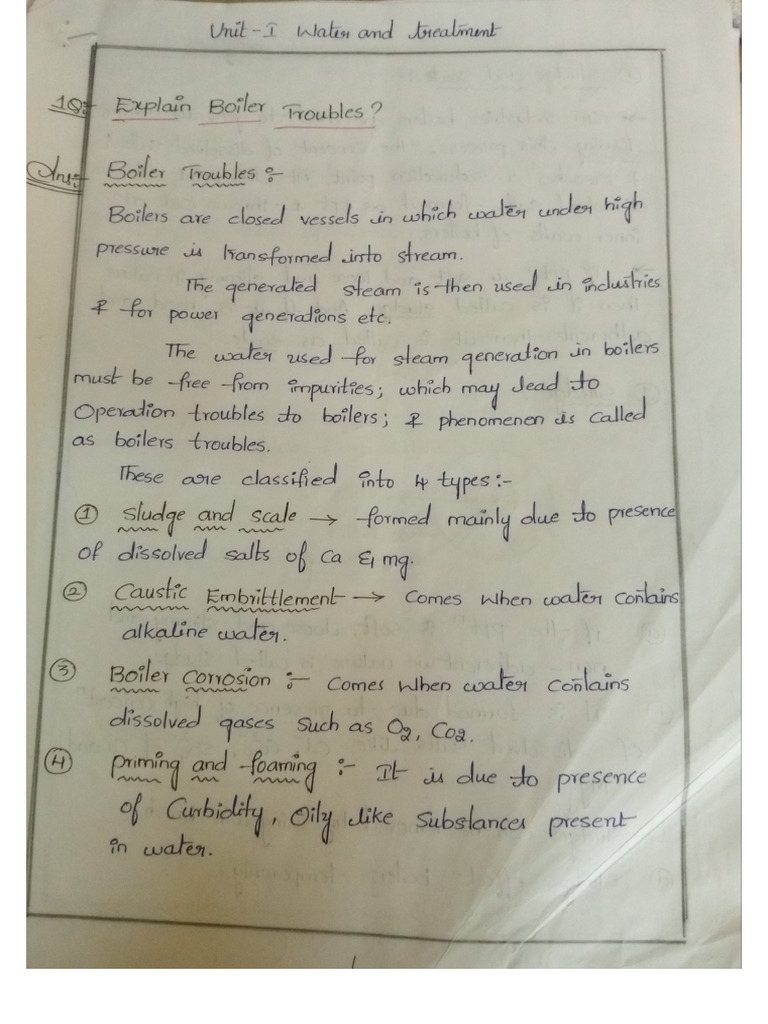 Unit-I Water and treatment
1Q:- Explain Boiler Troubles?
Ans:- Boiler Troubles :-
Boilers are closed vessels in which water under high
pressure is transformed into stream.
The generated steam is then used in industries
& for power generations etc.
The water used for steam generation in boilers
must be free from impurities; which may lead to
Operation troubles to boilers; & phenomenen is called
as boilers troubles.
These are classified into 4 types:-
① Sludge and scale → formed mainly due to presence
of dissolved salts of Ca & mg.
② Caustic Embrittlement → Comes when water contains
alkaline water.
③ Boiler Corrosion :- Comes when water contains
dissolved gases such as O2, Co2.
④ priming and foaming :- It is due to presence
of Curbidity, Oily like Substances present
in water.